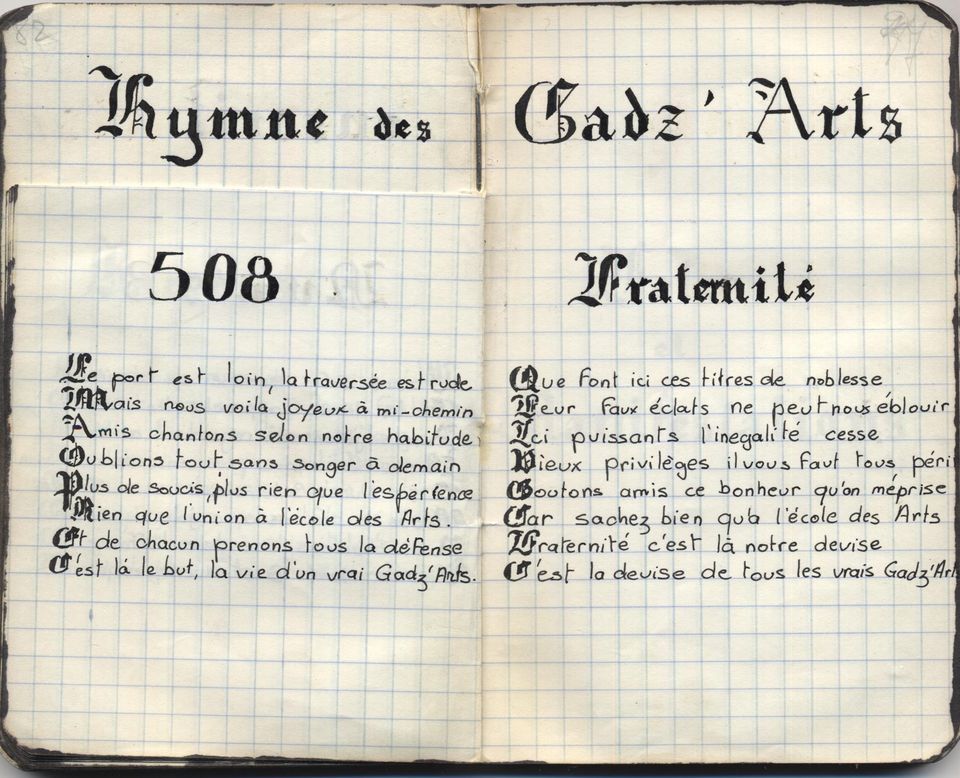 82
Hymne des Gadz'Arts
508
Le port est loin, la traversée est rude
Mais nous voilà joyeux à mi-chemin
Amis chantons selon notre habitude
Oublions tout sans songer à demain
Plus de soucis, plus rien que l'espérience
Rien que l'union à l'école des Arts.
Et de chacun prenons tous la défense
C'est là le but, la vie d'un vrai Gadz'Arts.
Fraternité
Que font ici ces titres de noblesse
Leur faux éclats ne peut nous éblouir
Ici puissants l'inegalité cesse
Vieux privilèges il vous faut tous péri
Goutons amis ce bonheur qu'on méprise
Car sachez bien qu'à l'école des Arts
Fraternité c'est là notre devise
C'est la devise de tous les vrais Gadz'Arts